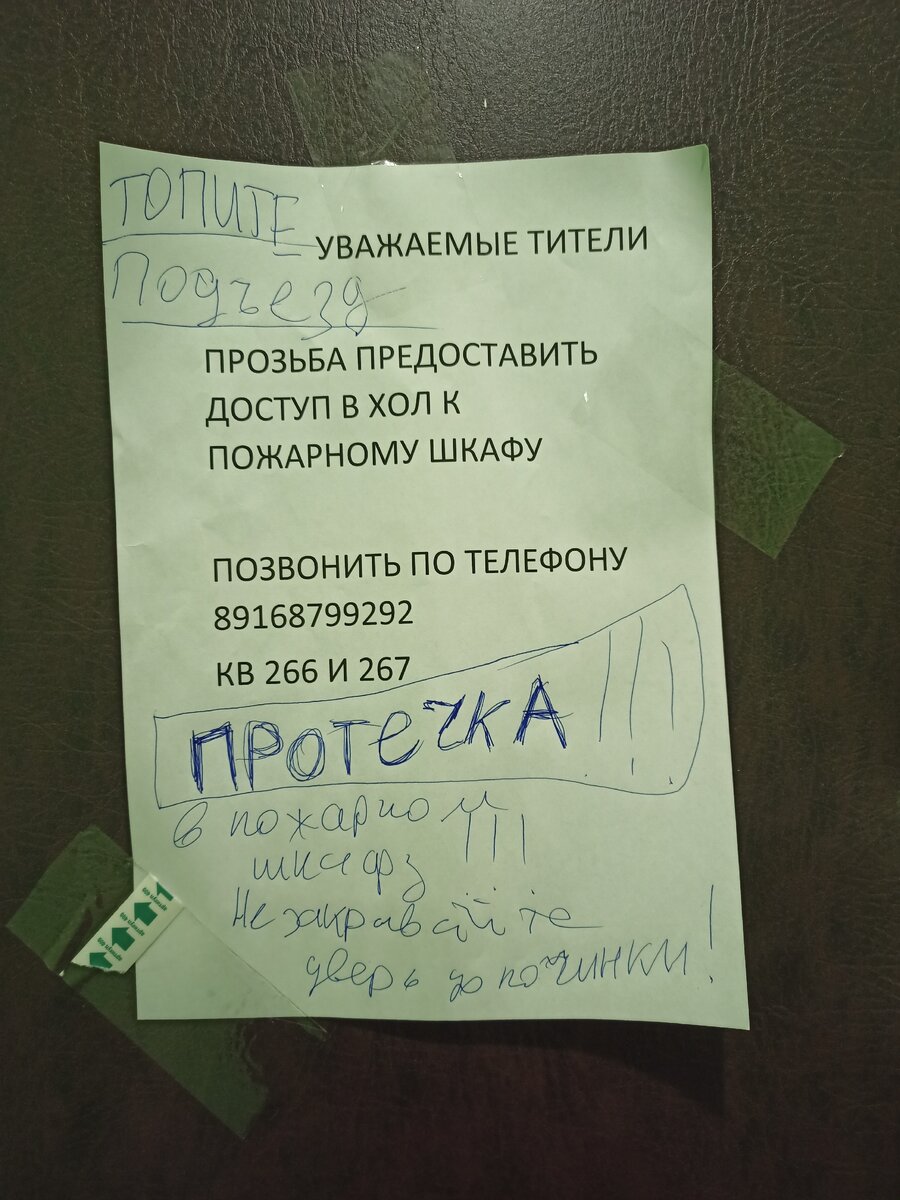 ТОПИТЕ
Подъезд
УВАЖАЕМЫЕ ТИТЕЛИ
ПРОЗЬБА ПРЕДОСТАВИТЬ
ДОСТУП В ХОЛ К
ПОЖАРНОМУ ШКАФУ
ПОЗВОНИТЬ ПО ТЕЛЕФОНУ
89168799292
КВ 266 И 267
ПРОТЕЧКА !!!
в пожарном
шкафу !!!
Не закрывайте
дверь до починки!